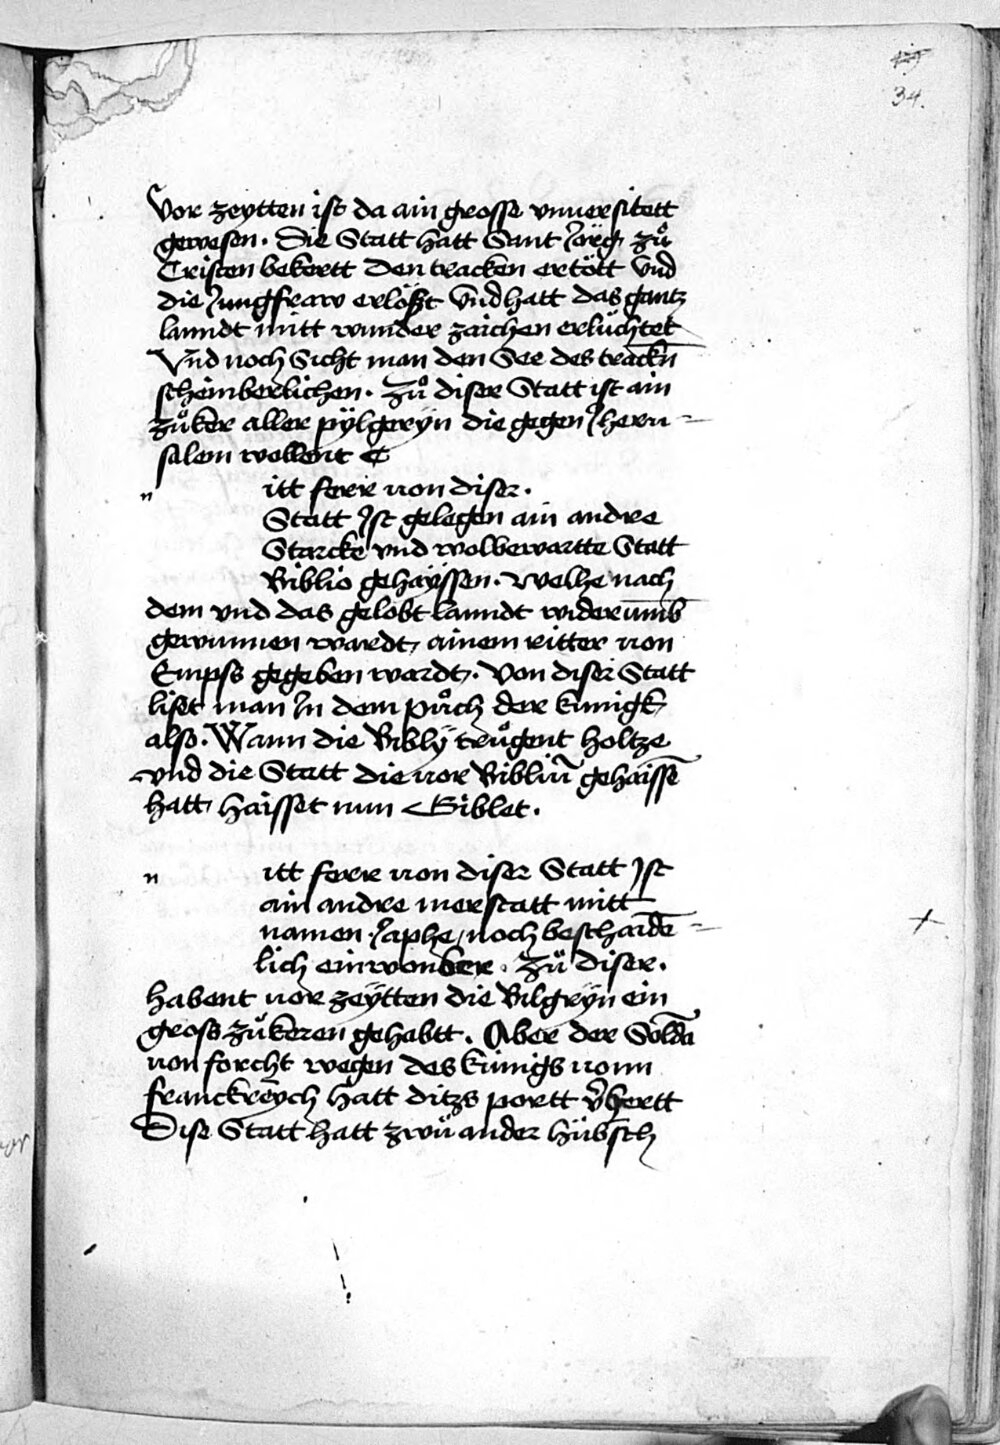 34.
Vor zeytten ist da ain grosse vniuersitett
gewesen. Die Statt hatt Sant Jörg zů
Cristen bekertt den tracken ertött vnd
die Jungfraw erlößt vnd hatt das gantz
lanndt mitt wunder zaichen erlüchtet
Vnd noch Sicht man den See des trackn̄
scheinberlichen. Zů diser Statt ist ain
zůker aller pÿlgerÿn die gegen Jheru=
salem wellent
n itt ferr von diser.
Statt Jst gelegen ain andre
Starcke vnd wolbewartte Statt
Biblio gehaÿssen. welhe nach
dem vnd das gelobt lanndt widerumb
gewunnen wardt, ainem ritter von
Empss gegeben wardt. Von diser Statt
liset man Jn dem půch der kunigk
also. Wann die Biblÿ trůgent holtze
vnd die Statt die vor Bibliū gehaissē
hatt, haisset nun Giblet.
n itt ferr von diser Statt Jst
ain andre merstatt mitt
namen Japhe, noch beschaidē=
lich einwonber. Zů diser.
habent vor zeÿtten die Bilgrÿn ein
gross zůkeren gehabtt. Aber der Soldā
von forcht wegen des künigs vonn
franckreÿch hatt ditzs portt v̄hertt
Dise Statt hatt zwů ander hübsch